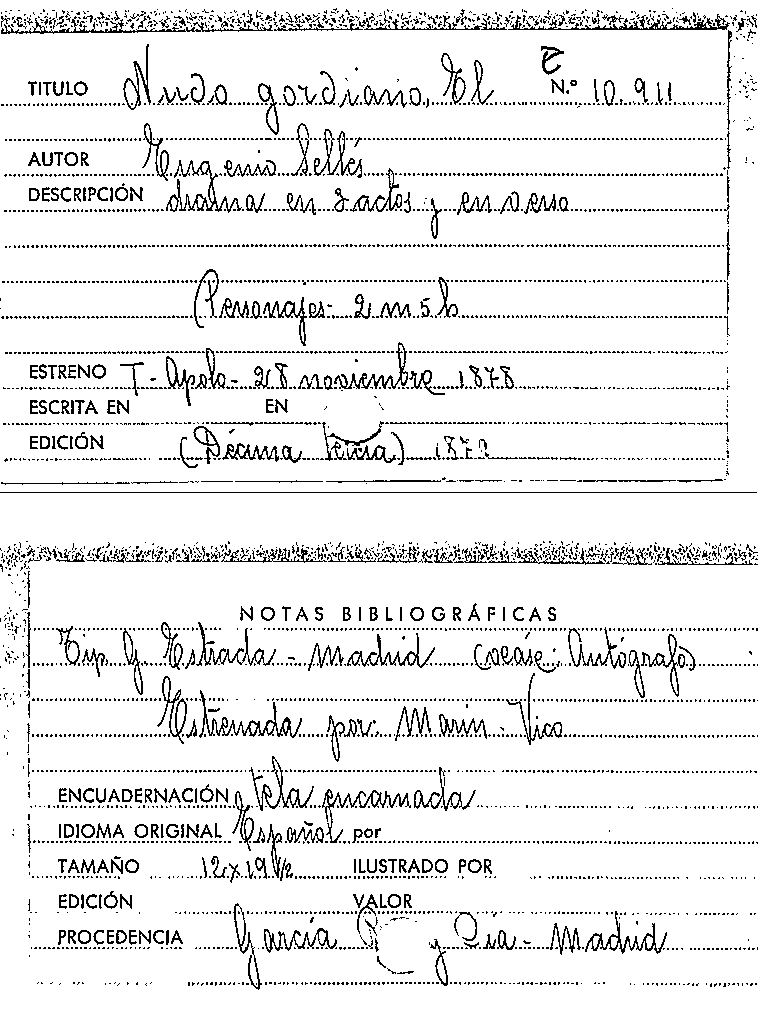 TITULO Nudo gordiano, El N.º 10.911
AUTOR Eugenio Sellés
DESCRIPCIÓN drama en 3 actos y en verso
(Personajes- 2 m 5 h
ESTRENO T- Apolo- 28 noviembre 1878
ESCRITA EN EN
EDICIÓN (Décima tercia) 187
NOTAS BIBLIOGRÁFICAS
Tip. G. Estrada - Madrid (veáse: Autógrafos)
Estrenada por: Marin - Vico
ENCUADERNACIÓN tela encarnada
IDIOMA ORIGINAL Español por
TAMAÑO 12x19 1/2 ILUSTRADO POR
EDICIÓN VALOR
PROCEDENCIA García y Cia - Madrid